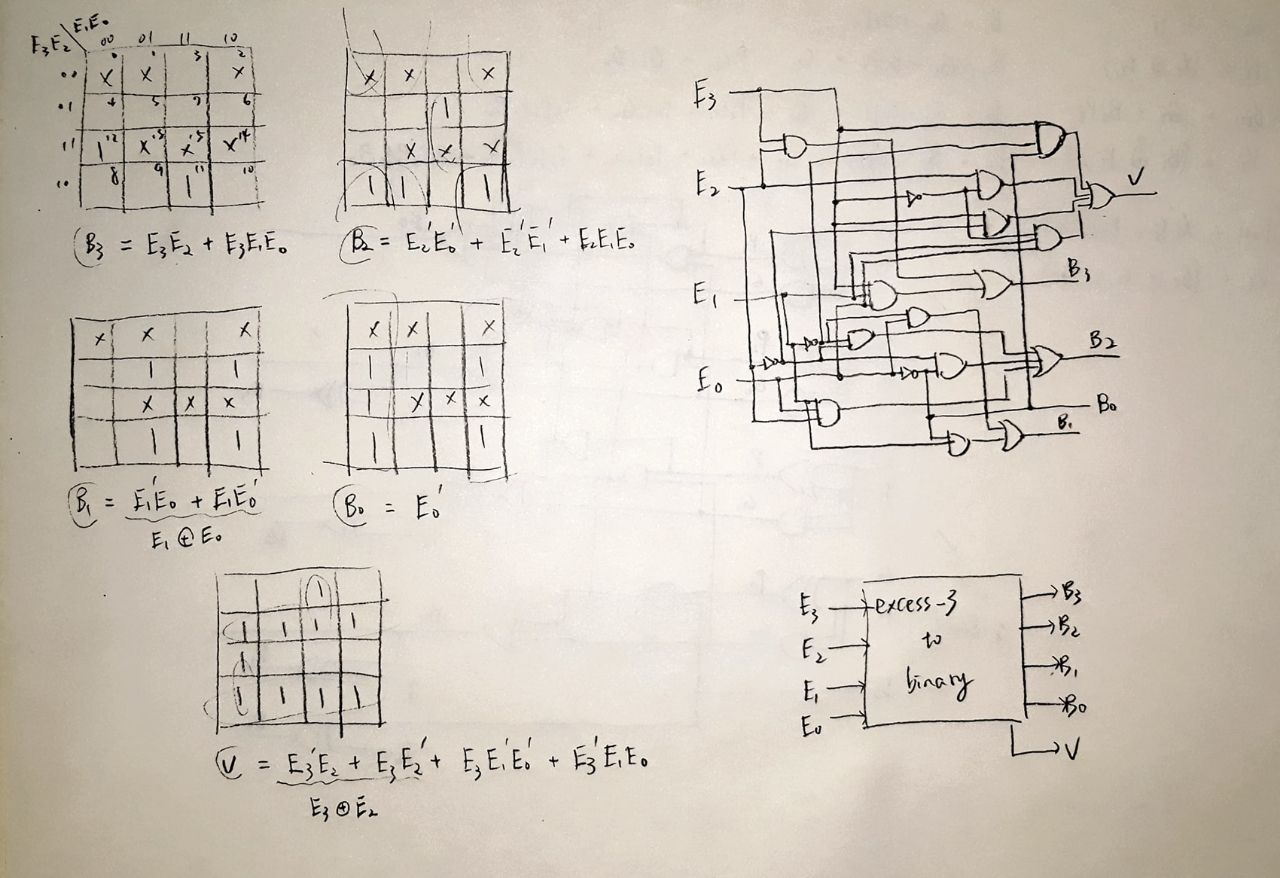 E₁E₀
E₃E₂ 00 01 11 10
00 X⁰ X¹ ³ X²
01 4 5 7 6
11 1¹² X¹³ X¹⁵ X¹⁴
10 8 9 1¹¹ 10
B₃ = E₃E₂ + E₃E₁E₀
X X X
1
X X X
1 1 1
B₂ = E₂'E₀' + E₂'E₁' + E₂E₁E₀
X X X
1 1
X X X
1 1
B₁ = E₁'E₀ + E₁E₀'
E₁ ⊕ E₀
X X X
1 1
X X X
1 1
B₀ = E₀'
1
1 1 1 1
1
1 1 1 1
V = E₃'E₂ + E₃E₂' + E₃E₁'E₀' + E₃'E₁E₀
E₃ ⊕ E₂
E₃
E₂
E₁
E₀
V
B₃
B₂
B₀
B₁
E₃ excess-3 B₃
E₂ to B₂
E₁ binary B₁
E₀ B₀
V